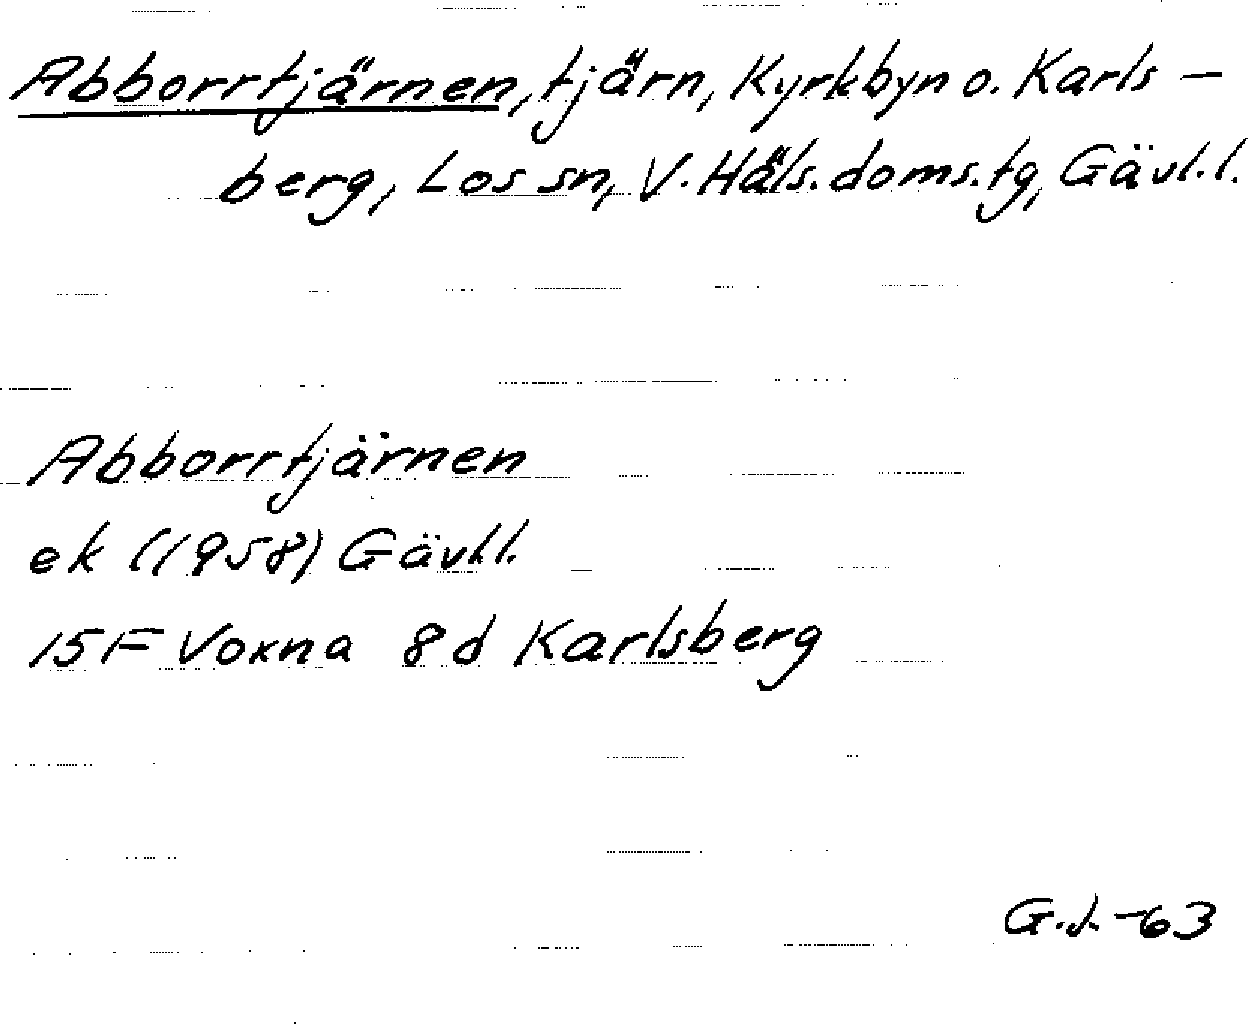 Abborrtjärnen, tjärn, Kyrkbyn o. Karls-
berg, Los sn, V. Häls. doms. tg, Gävl. l.
Abborrtjärnen
ek (1958) Gävl.l.
15F Voxna 8d Karlsberg
G.J. -63